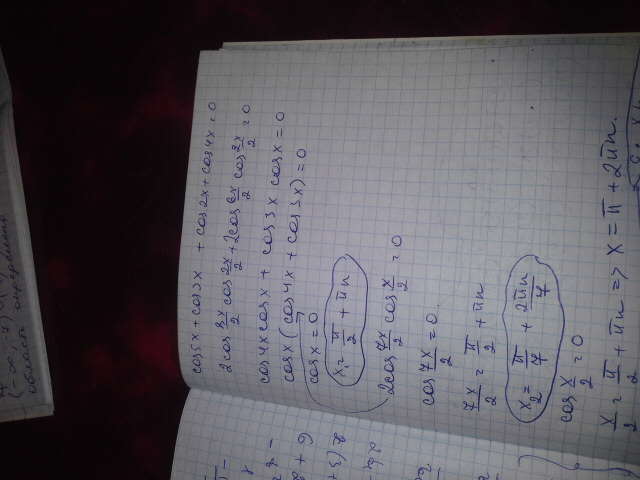 (-∞; -7)
область определено
cos5x + cos3x + cos2x + cos4x = 0
2cos 8x/2 cos 2x/2 + 2cos 6x/2 cos 2x/2 = 0
cos4x cosx + cos3x cosx = 0
cosx (cos4x + cos3x) = 0
cosx = 0
x₁ = π/2 + πn
2cos 7x/2 cos x/2 = 0
cos 7x/2 = 0.
7x/2 = π/2 + πn
x₂ = π/7 + 2πn/7
cos x/2 = 0
x/2 = π/2 + πn => x = π + 2πn.